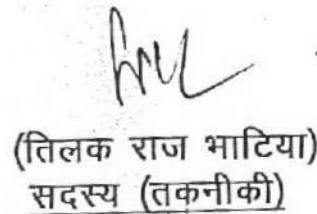 (तिलक राज भाटिया)
सदस्य (तकनीकी)